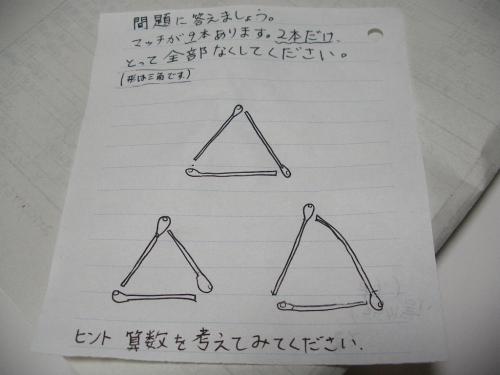 問題に答えましょう。
マッチが9本あります。2本だけ、
とって全部なくしてください。
(形は三角です)
ヒント 算数を考えてみてください.